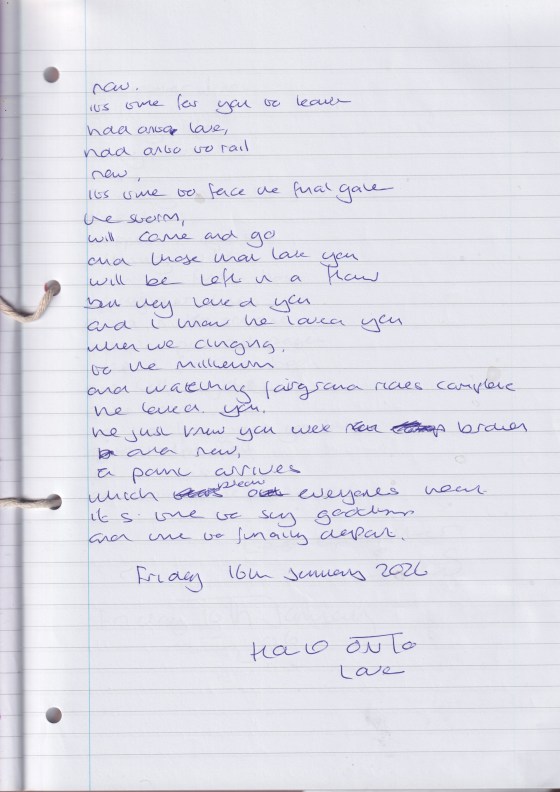 now.
its time for you to leave
hold onto love,
hold onto to rail
now,
its time to face the final gale
the storm,
will come and go
and those that love you
will be left in a flow
but they loved you
and i know he loved you
when we clinging,
to the millenium
and watching fairground rides complete
he loved you.
he just knew you were broken
and now,
a panic arrives
which breaks everyones heart
it s time to say goodbye
and time to finally depart.
Friday 16th January 2026
HOLD ONTO
Love